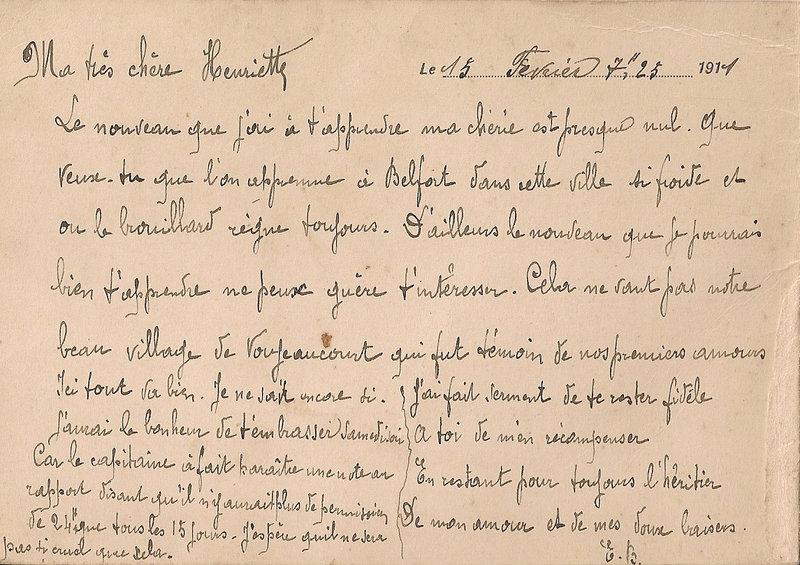 Ma très chère Henriette
Le 15 Fevrier 7h,25 1911
Le nouveau que j'ai à t'apprendre ma chérie est presque nul. Que
veux-tu que l'on apprenne à Belfort dans cette ville si froide et
ou le brouillard règne toujours. D'ailleurs le nouveau que je pourrais
bien t'apprendre ne peux guère t'intéresser. Cela ne vaut pas notre
beau village de Voujeaucourt qui fut témoin de nos premiers amours
Ici tout va bien. Je ne sait encore si
j'aurai le bonheur de t'embrasser samedi soir
Car le capitaine à fait paraître une note au
rapport disant qu'il n'y aurait plus de permission
de 24h que tous les 15 jours. J'espère qu'il ne sera
pas si cruel que cela.
J'ai fait serment de te rester fidèle
A toi de m'en récompenser
En restant pour toujours l'héritier
De mon amour et de mes doux baisers.
E. B.